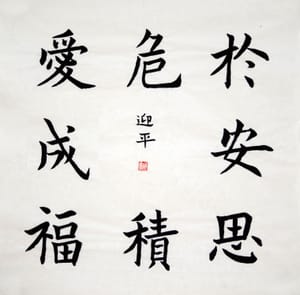 於安思
危積
愛成福
迎平